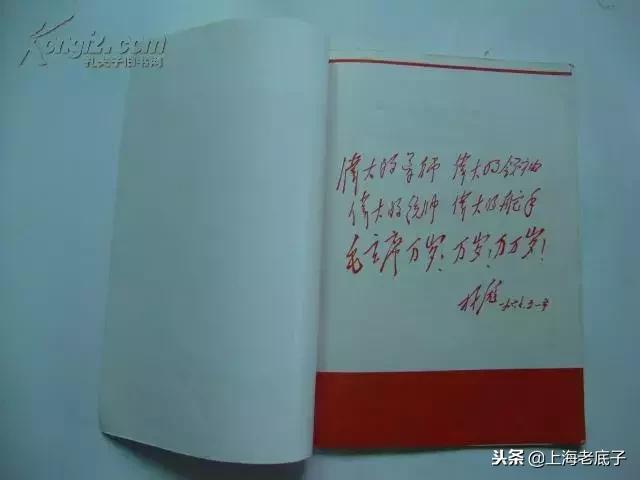 Kongfz.com
孔夫子旧书网
偉大的导师 偉大的領袖
偉大的统帅 偉大的舵手
毛主席万岁！万岁！万万岁！
林彪
头条 @上海老底子